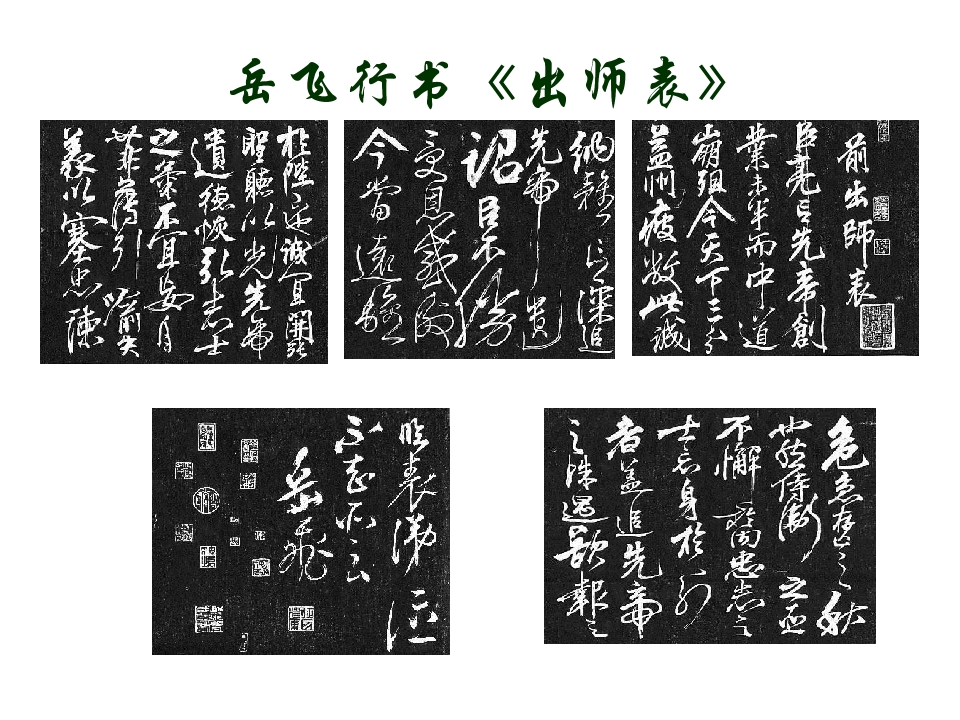 岳飞行书《出师表》
前出師表
臣亮言先帝創
業未半而中道
崩殂今天下三分
益州疲敝此誠
危急存亡之秋
也然侍衛之臣
不懈於内忠志之
士忘身於外
者蓋追先帝
之殊遇欲報之
於陛下誠宜開張
聖聽以光先帝
遺德恢弘志士
之氣不宜妄自
菲薄引喻失
義以塞忠諫
納雅言深追
先帝遺
詔臣不勝
受恩感激
今當遠離
臨表涕泣
不知所云
岳飛